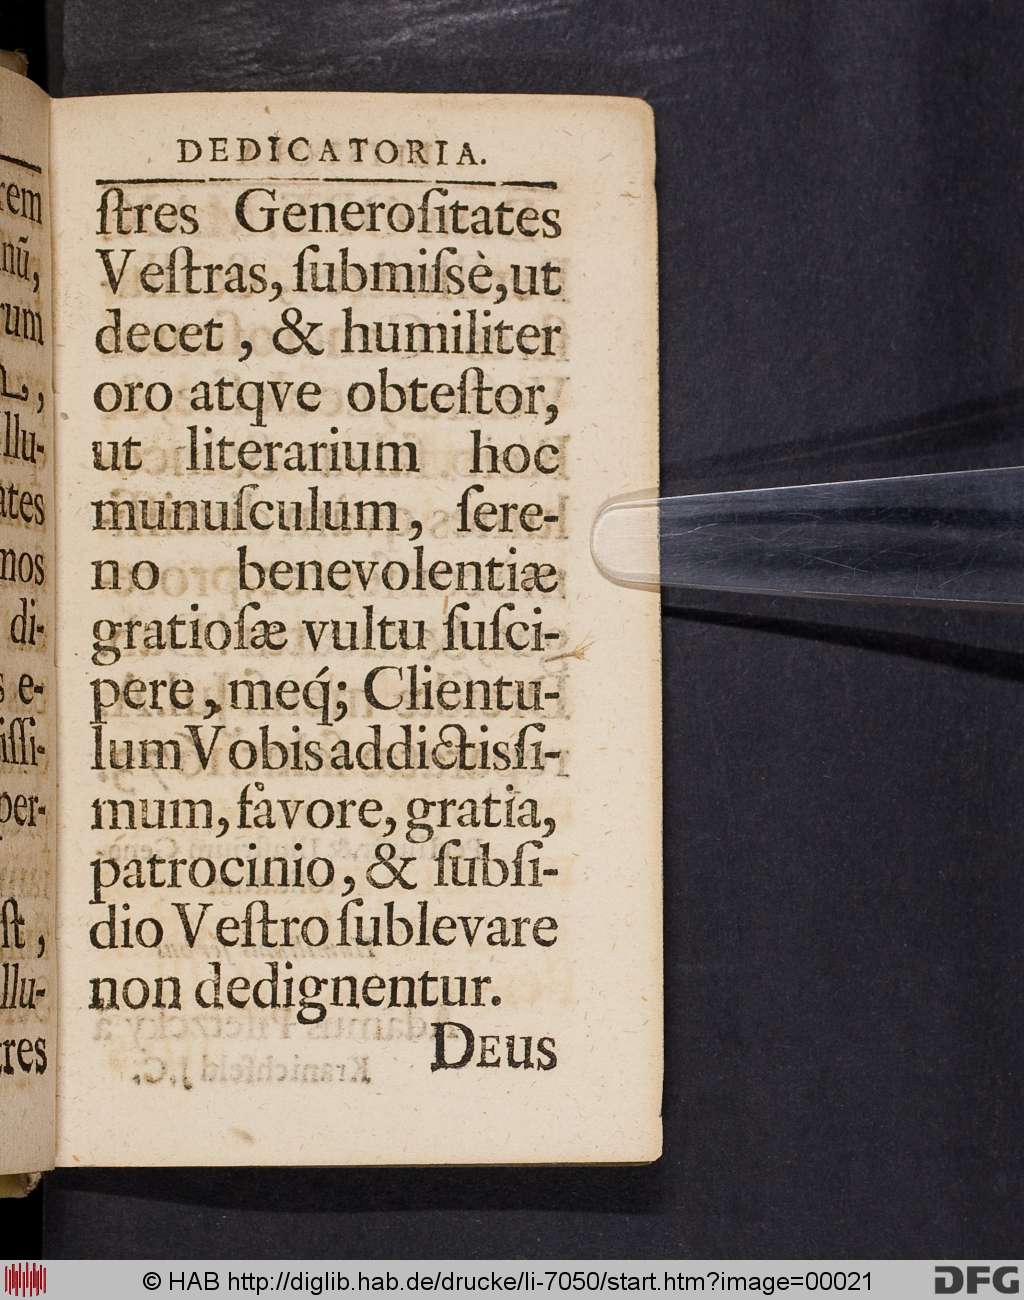 DEDICATORIA.
ſtres Generoſitates
Veſtras, ſubmiſsè, ut
decet, & humiliter
oro atqve obteſtor,
ut literarium hoc
munuſculum, ſere-
no benevolentiæ
gratioſæ vultu ſuſci-
pere, meq́; Clientu-
lum Vobis addictisſi-
mum, favore, gratia,
patrocinio, & ſubſi-
dio Veſtro ſublevare
non dedignentur.
DEUS
rem
nũ,
rum
llu-
ates
mos
di-
s e-
iſſi-
per-
ſt,
llu-
tres
© HAB http://diglib.hab.de/drucke/li-7050/start.htm?image=00021
DFG